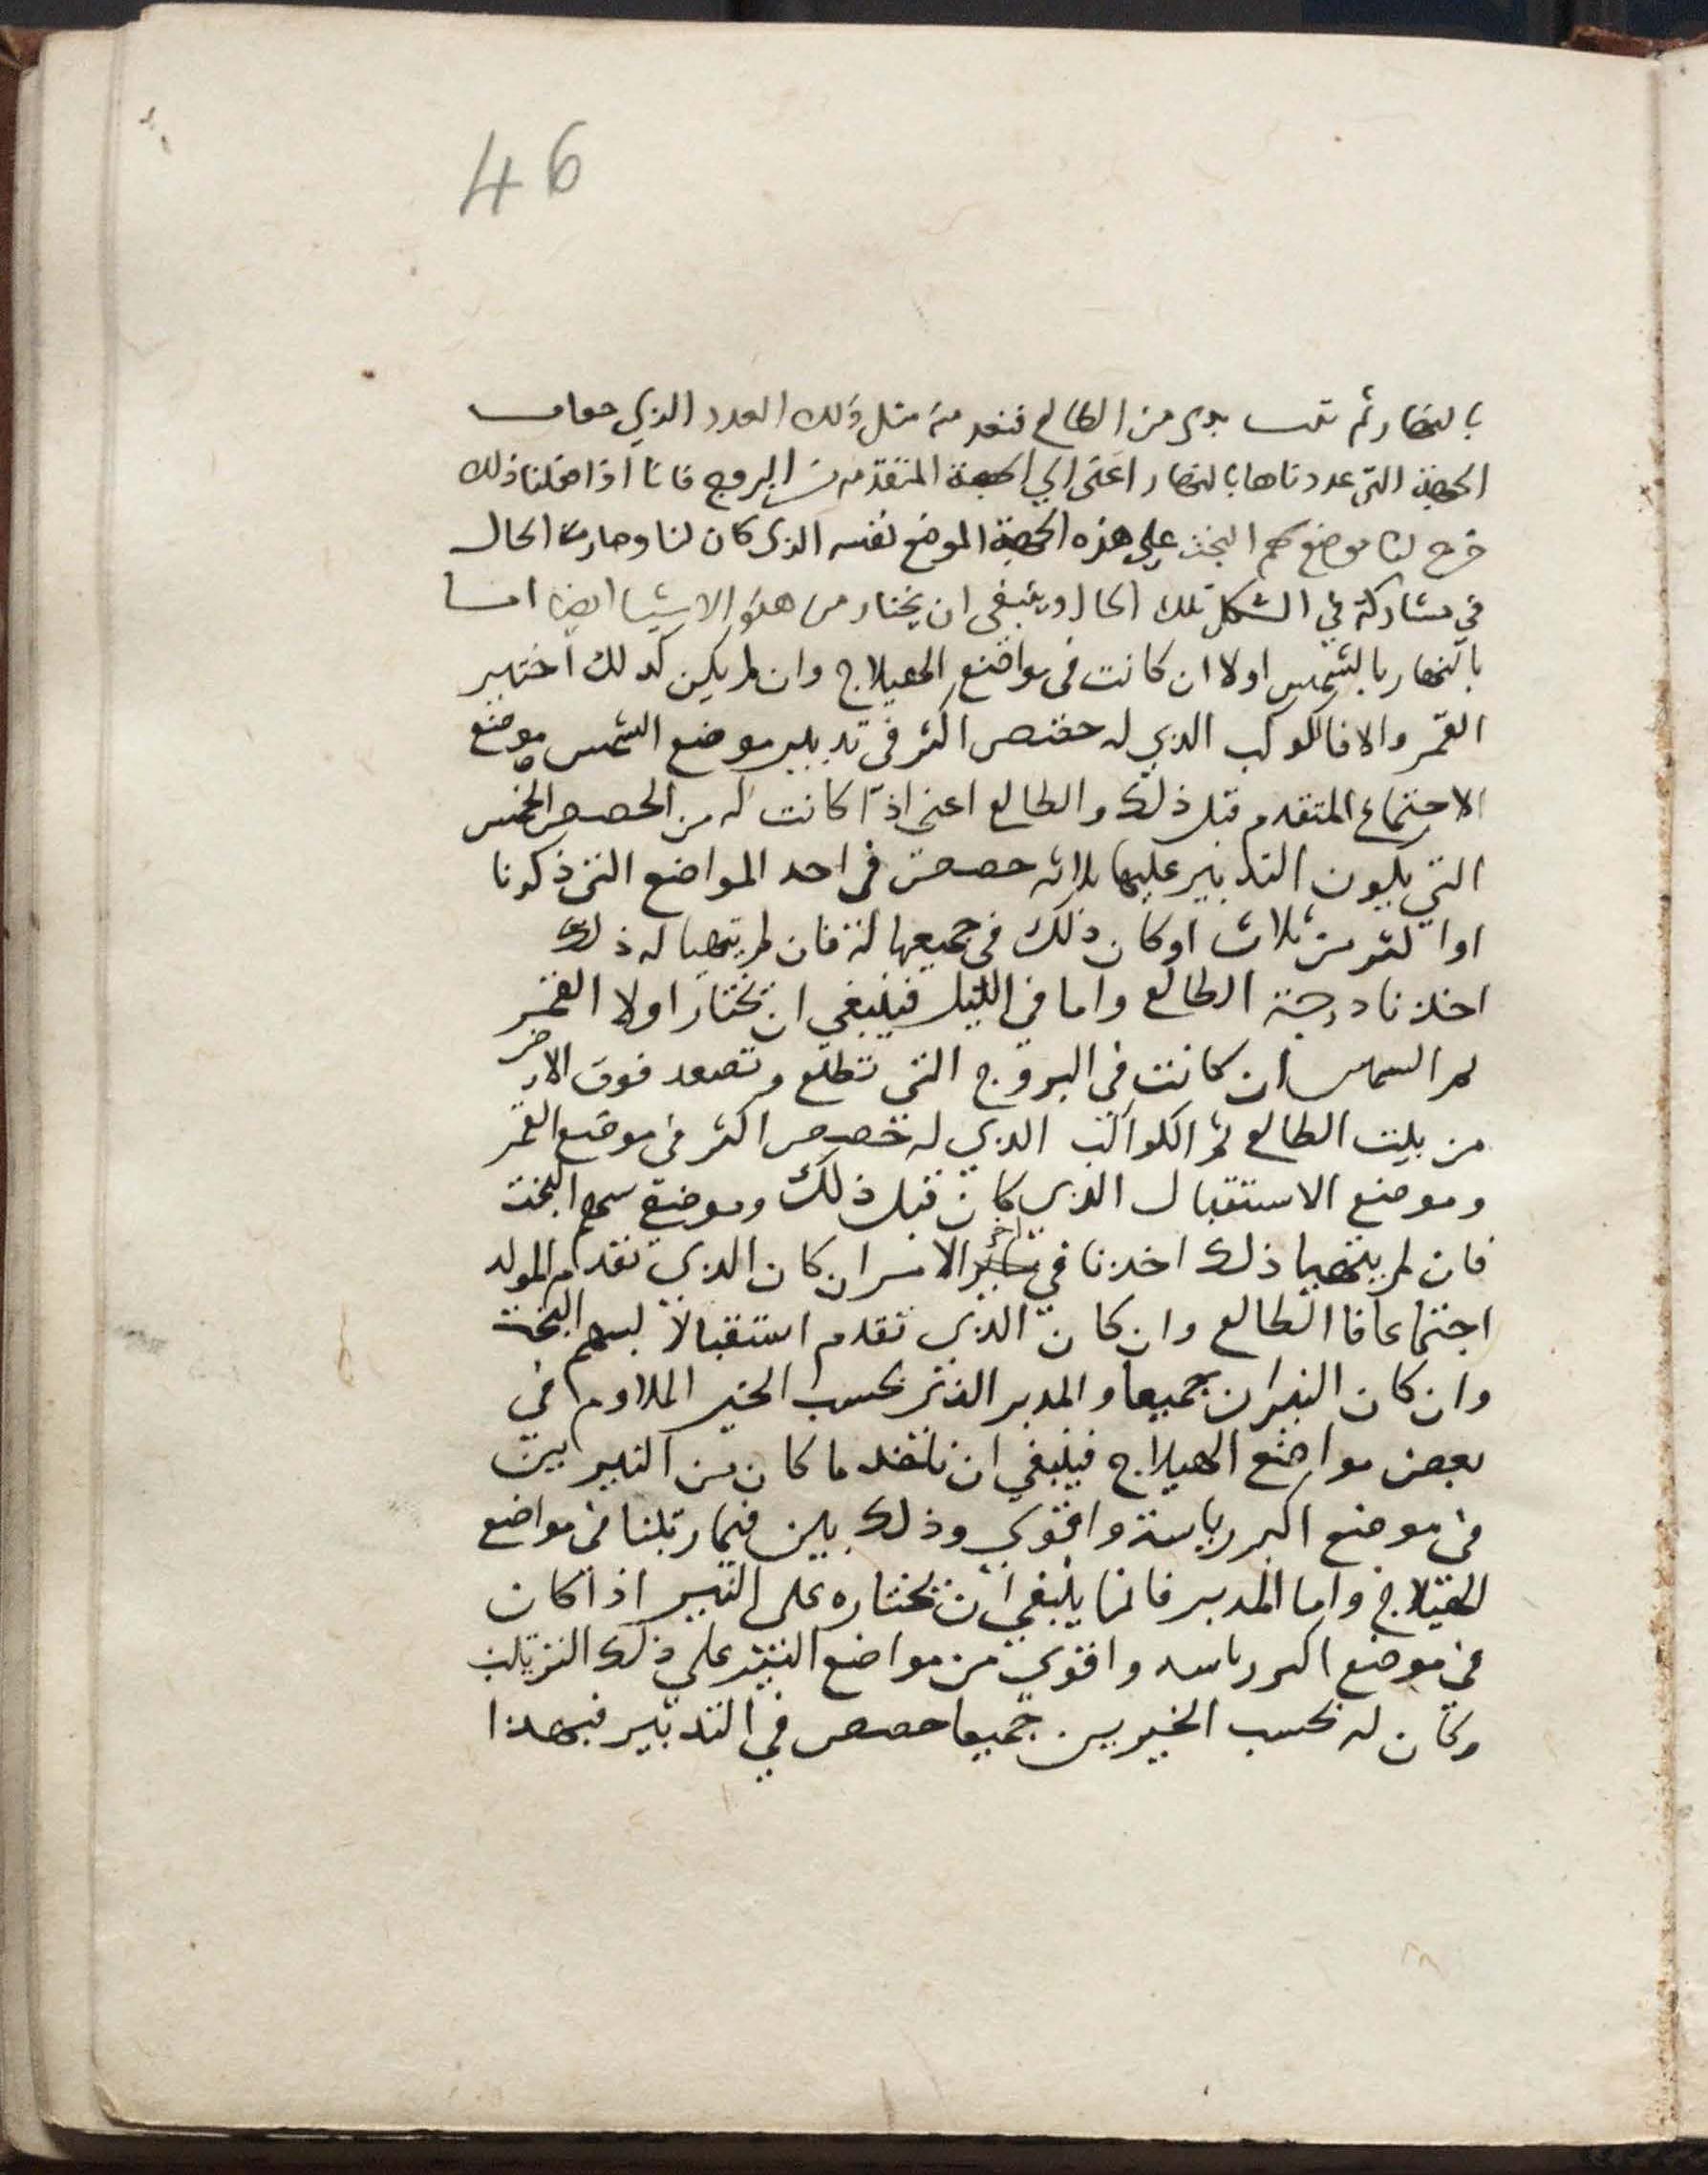 46
بالنهار ثم نبتدى من الطالع فنعد منه مثل ذلك العدد الذي
الجهة التى عددناها بالنهار اعنى الي الجهة المتقدمه من البروج فانا اذا فعلنا ذلك
خرج لنا موضع سهم البخت علي هذه الجهة الموضع نفسه الذى كان لنا وصارت الحال
في مشاركة في الشكل تلك الحال وينبغى ان يختار من هذه الاشيا ايضا اما
بالنهار بالشمس اولا ان كانت فى مواضع الهيلاج وان لم يكن كدلك اختير
القمر والا فالكوكب الدي له حصص اكثر فى تدبير موضع الشمس موضع
الاجتماع المتقدم قبل ذلك والطالع اعنى اذا كانت له من الحصص الخمس
التي يكون التدبير عليها ثلاثه حصص فى احد المواضع التى ذكرنا
او اكثر من ثلاث او كان ذلك فى جميعها له فان لم يتهيا له ذلك
اخذنا درجة الطالع واما في الليل فينبغي ان تختار اولا القمر
ثم الشمس ان كانت فى البروج التى تطلع وتصعد فوق الارض
من بيت الطالع ثم الكواكب الدي له حصص اكثر فى موضع القمر
وموضع الاستقبال الذى كان قبل ذلك وموضع سهم البخت
فان لم يتهيا ذلك اخذنا في اخر الامر ان كان الدي تقدم المولد
اجتماعا فا الطالع وان كان الذى تقدم استقبالا لسهم البخت
وان كان النيران جميعا والمدبر الذى بحسب الخير الملاوم في
بعض مواضع الهيلاج فينبغي ان ناخذ ما كان من النيرين
فى موضع اكبر رياسة واقوي وذلك بين فيما رتبنا فى مواضع
الهيلاج واما المدبر فانما ينبغي ان نختاره على النير اذا كان
فى موضع اكبر رياسه واقوي من مواضع النير علي ذلك الترتيب
وكان له بحسب الخيرين جميعا حصص في التدبير فبهذا